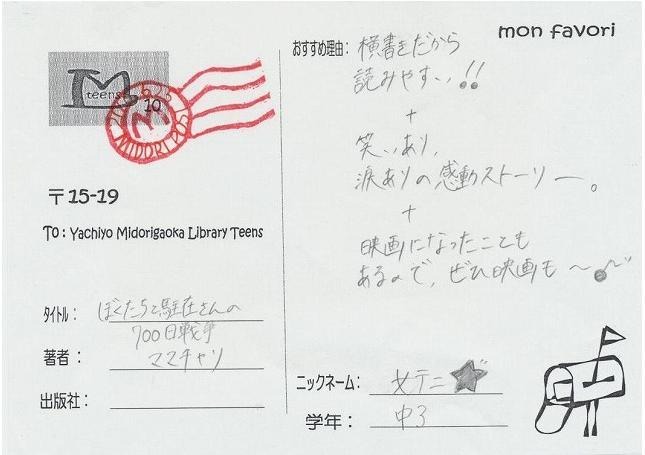 mon favori
M
teens
10
MIDORI POS
〒15-19
To : Yachiyo Midorigaoka Library Teens
タイトル： ぼくたちと駐在さんの
700日戦争
著者： ママチャリ
出版社：
おすすめ理由： 横書きだから
読みやすい!!
+
笑いあり、
涙ありの感動ストーリー。
+
映画になったことも
あるので、ぜひ映画も〜
ニックネーム： 女テニ★
学年： 中3